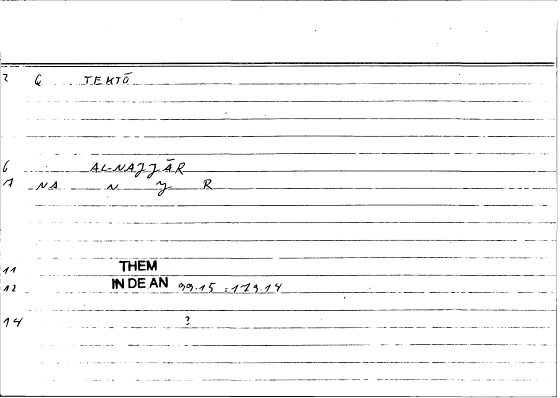 2 G TEKTŌ
6 AL-NAJJĀR
7 NA N Y R
11 THEM
12 IN DE AN 99.15 = 179.14
14 ?